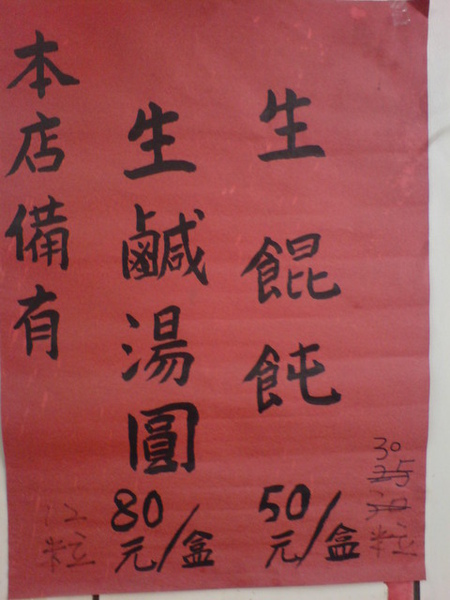 本店備有
生鹹湯圓
80元/盒
12粒
生餛飩
50元/盒
30
25
粒